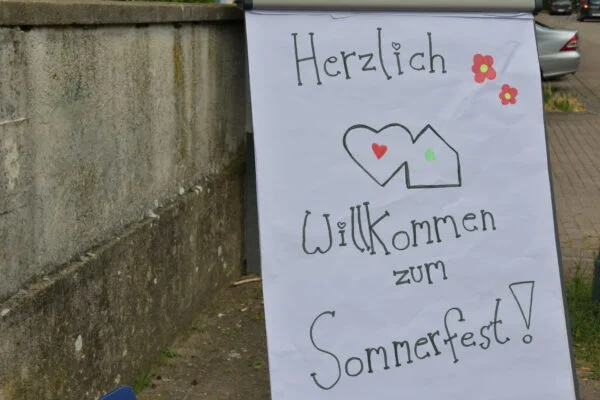 Herzlich
Willkommen
zum
Sommerfest!